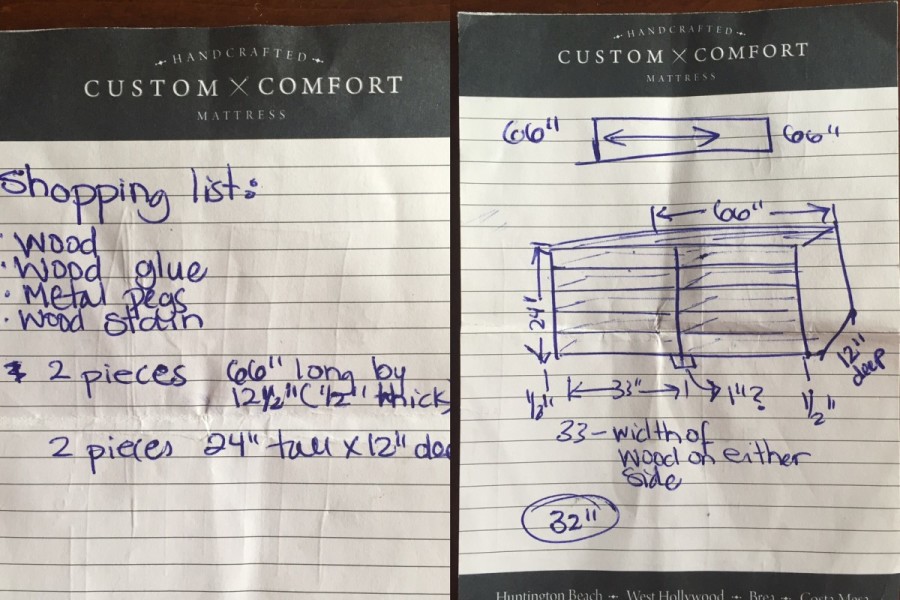 HANDCRAFTED
CUSTOM X COMFORT
MATTRESS
Shopping list:
· Wood
· Wood glue
· Metal pegs
· Wood stain
2 pieces 66" long by
12½" (½" thick
2 pieces 24" tall x 12" dee
HANDCRAFTED
CUSTOM X COMFORT
MATTRESS
66" 66"
66"
24"
12"
deep
½" 33" 1"? ½"
33 - width of
wood on either
side
32"
Huntington Beach West Hollywood Brea Costa Mesa